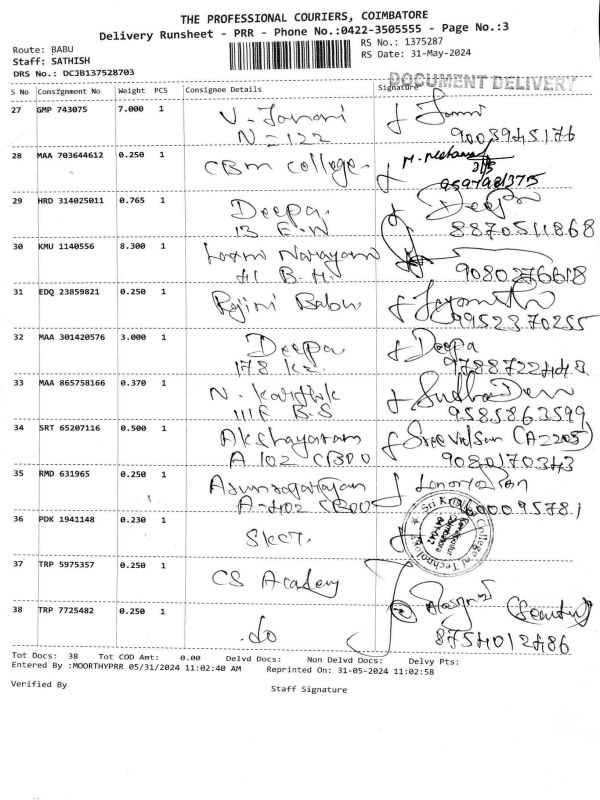 THE PROFESSIONAL COURIERS, COIMBATORE
Delivery Runsheet - PRR - Phone No.:0422-3505555 - Page No.:3
Route: BABU
RS No.: 1375287
Staff: SATHISH
RS Date: 31-May-2024
DRS No.: DCJB137528703
DOCUMENT DELIVERY
S No Consignment No Weight PCS Consignee Details Signature
27 GMP 743075 7.000 1 V. Janani
N = 122 9003945176
28 MAA 703644612 0.250 1 CBM College
9597981375
29 HRD 314025011 0.765 1 Deepa Deepa
13 E.W 8870511868
30 KMU 1140556 8.300 1 Laxmi Narayani
411 B.H. 9080276618
31 EDQ 23859821 0.250 1 Rajini Babu Jayanthi
9952370255
32 MAA 301420576 3.000 1 Deepa Deepa
178 K2 9788722448
33 MAA 865758166 0.370 1 N. Karthik Sudha Devi
111F B.S 9585863599
34 SRT 65207116 0.500 1 Akshayaram Sreevalsan (A2205)
A 102 CBDO 9080170343
35 RMD 631965 0.250 1
A-402 CBDO 600095781
36 PDK 1941148 0.230 1 SKCT.
Sri Krishna College of Technology
37 TRP 5975357 0.250 1 CS Academy
38 TRP 7725482 0.250 1 .do
8754012486
Tot Docs: 38 Tot COD Amt: 0.00 Delvd Docs: Non Delvd Docs: Delvy Pts:
Entered By :MOORTHYPRR 05/31/2024 11:02:40 AM Reprinted On: 31-05-2024 11:02:58
Verified By Staff Signature